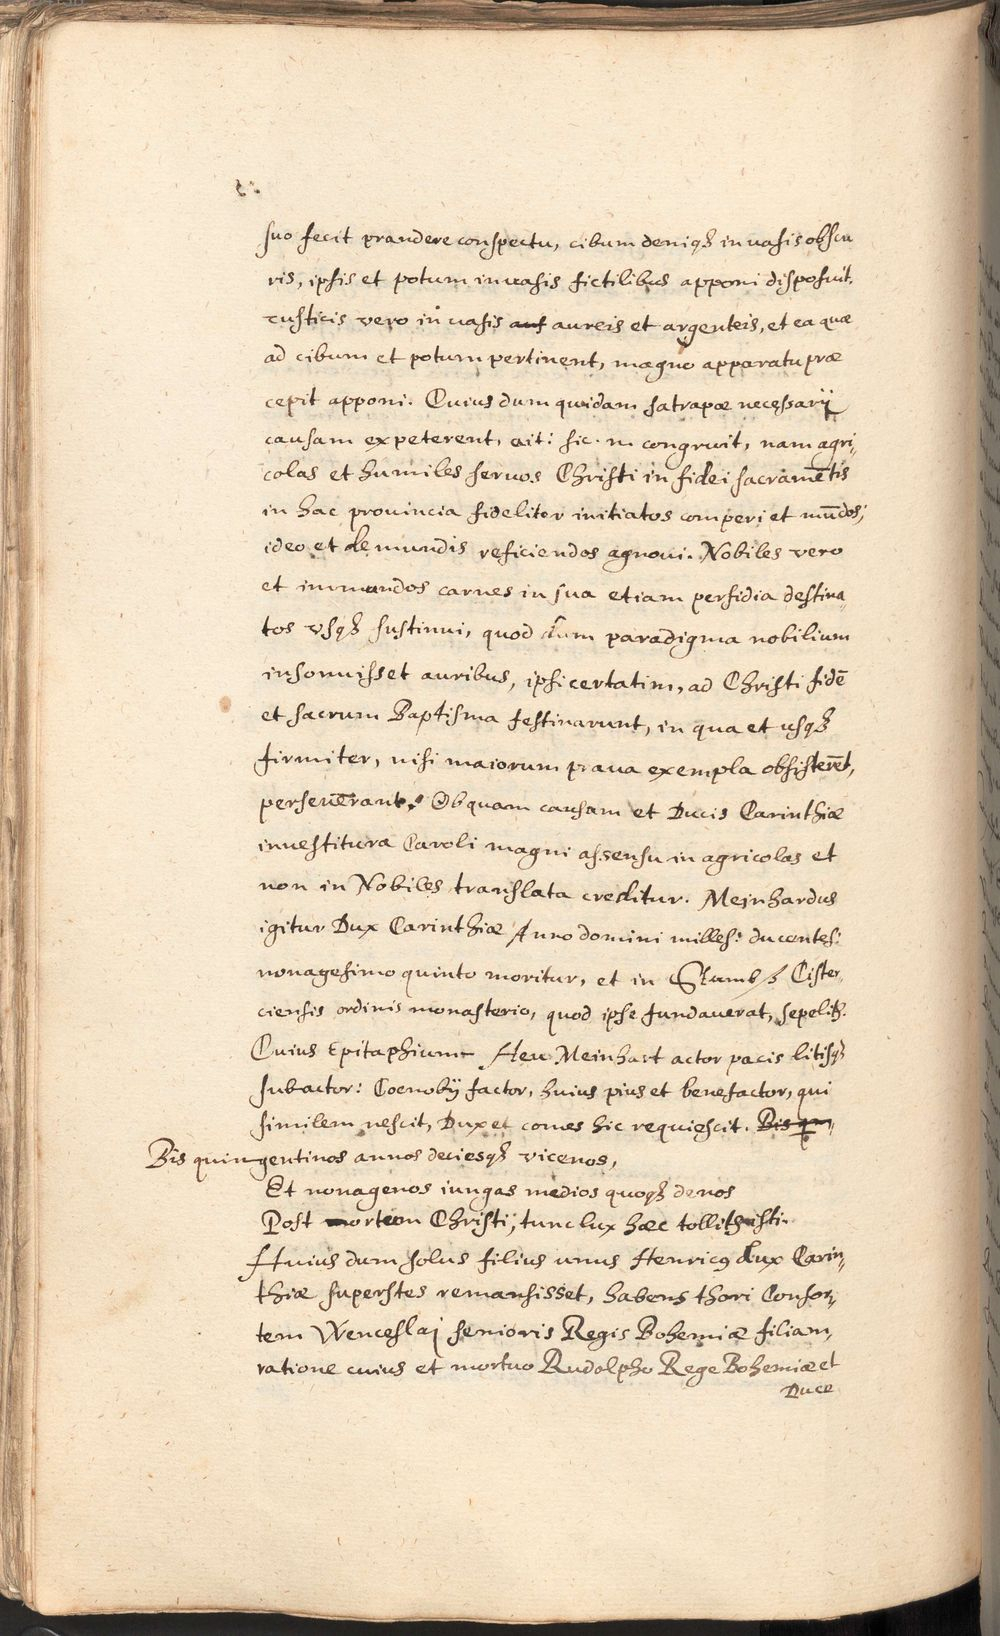 suo fecit prandere conspectu, cibum deniqȝ in uasis obscu
ris, ipsis et potum in uasis fictilibus apponi disposuit.
rusticis vero in uasis aureis et argenteis, et ea quæ
ad cibum et potum pertinent, magno apparatu præ
cepit apponi. Cuius dum quidam satrapæ necessarij
causam expeterent, ait: sic. m congruit, nam agri„
colas et humiles seruos Christi in fidei sacramētis
in hac prouincia fideliter initiatos comperi et mūdos;
ideo et de mundis reficiendos agnoui. Nobiles vero
et inmundos carnes in sua etiam perfidia destina„
tos vsqȝ sustinui, quod dum paradigma nobilium
insonuisset auribus, ipsi certatim, ad Christi fidē
et sacrum Baptisma festinarunt, in qua et usqȝ
firmiter, nisi maiorum praua exempla obsisterēt,
perseuērant. Ob quam causam et Ducis Carinthiæ
inuestitura Caroli magni assensu in agricolas et
non in Nobiles translata creditur. Meinhardus
igitur Dux Carinthiæ Anno domini milles: ducentes:
nonagesimo quinto moritur, et in Stambȝ Cister„
ciensis ordinis monasterio, quod ipse fundauerat, sepelitȝ.
Cuius Epitaphium Heu Meinhart actor pacis litisqȝ
subactor: Coenobij factor, huius pius et benefactor, qui
similem nescit, Dux et comes hic requiescit. Bis qm„
Bis quingentinos annos deciesqȝ vicenos,
Et nonagenos iungas medios quoqȝ denos
Post mortem Christi, tunc lux hæc tollitȝ isti.
Huius dum solus filius unus Henricꝯ dux Carin„
thiæ superstes remansisset, habens thori Consor„
tem Wenceslaj senioris Regis Bohemiæ filiam,
ratione cuius et mortuo Rudolpho Rege Bohemiæ et
Duce